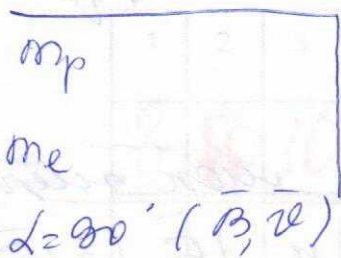 mp
me
α=90° (B̅, v̅)